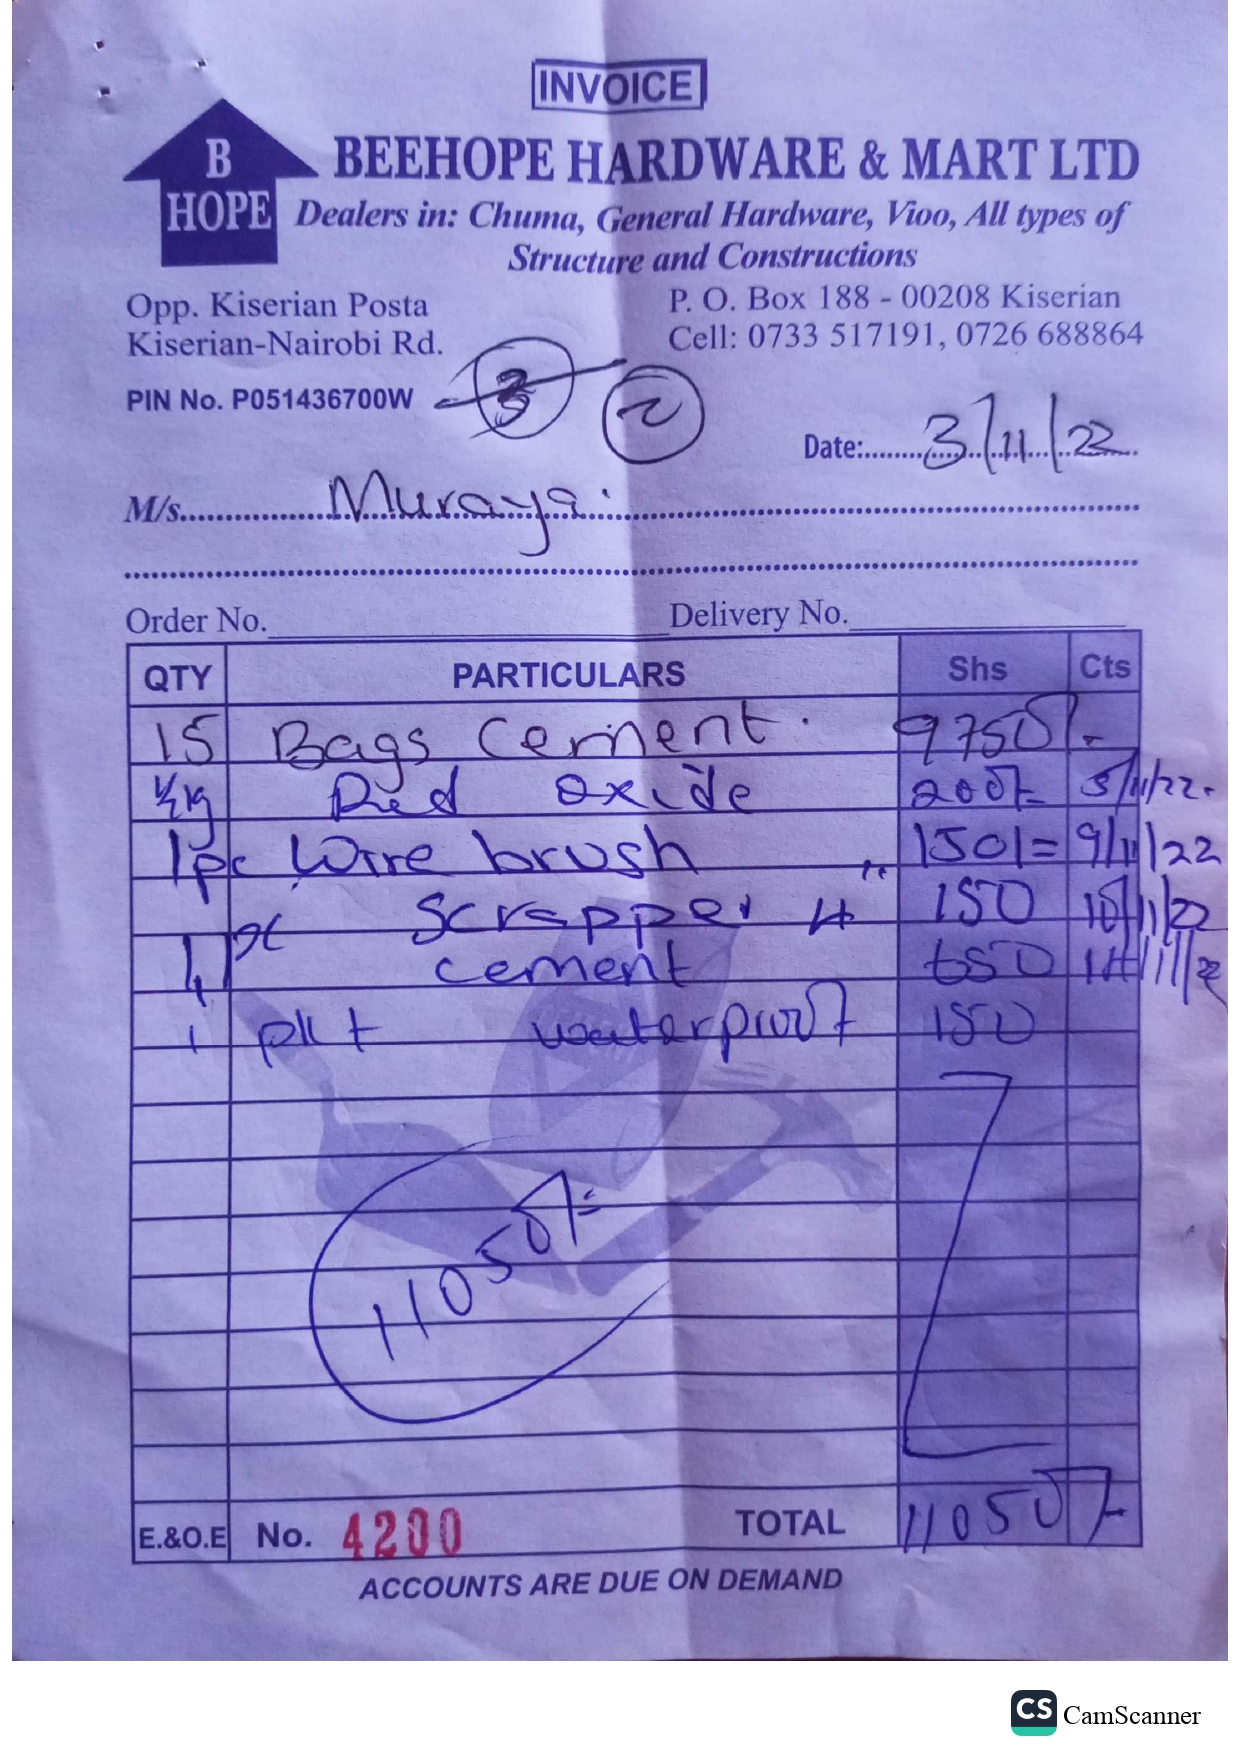 INVOICE
B
HOPE
BEEHOPE HARDWARE & MART LTD
Dealers in: Chuma, General Hardware, Vioo, All types of
Structure and Constructions
Opp. Kiserian Posta
Kiserian-Nairobi Rd.
P. O. Box 188 - 00208 Kiserian
Cell: 0733 517191, 0726 688864
PIN No. P051436700W
2
Date: 3/11/22
M/s. Muraya
Order No. Delivery No.
QTY PARTICULARS Shs Cts
15 Bags Cement 9750/-
½kg Red oxide 200/- 5/11/22
1pc Wire brush ,, 150/= 9/11/22
1 pc Scrapper 4 150 10/11/22
1 cement 650 14/11/22
1 pkt waterproof 150
11050/=
E.&O.E No. 4200 TOTAL 11050/-
ACCOUNTS ARE DUE ON DEMAND
CS CamScanner